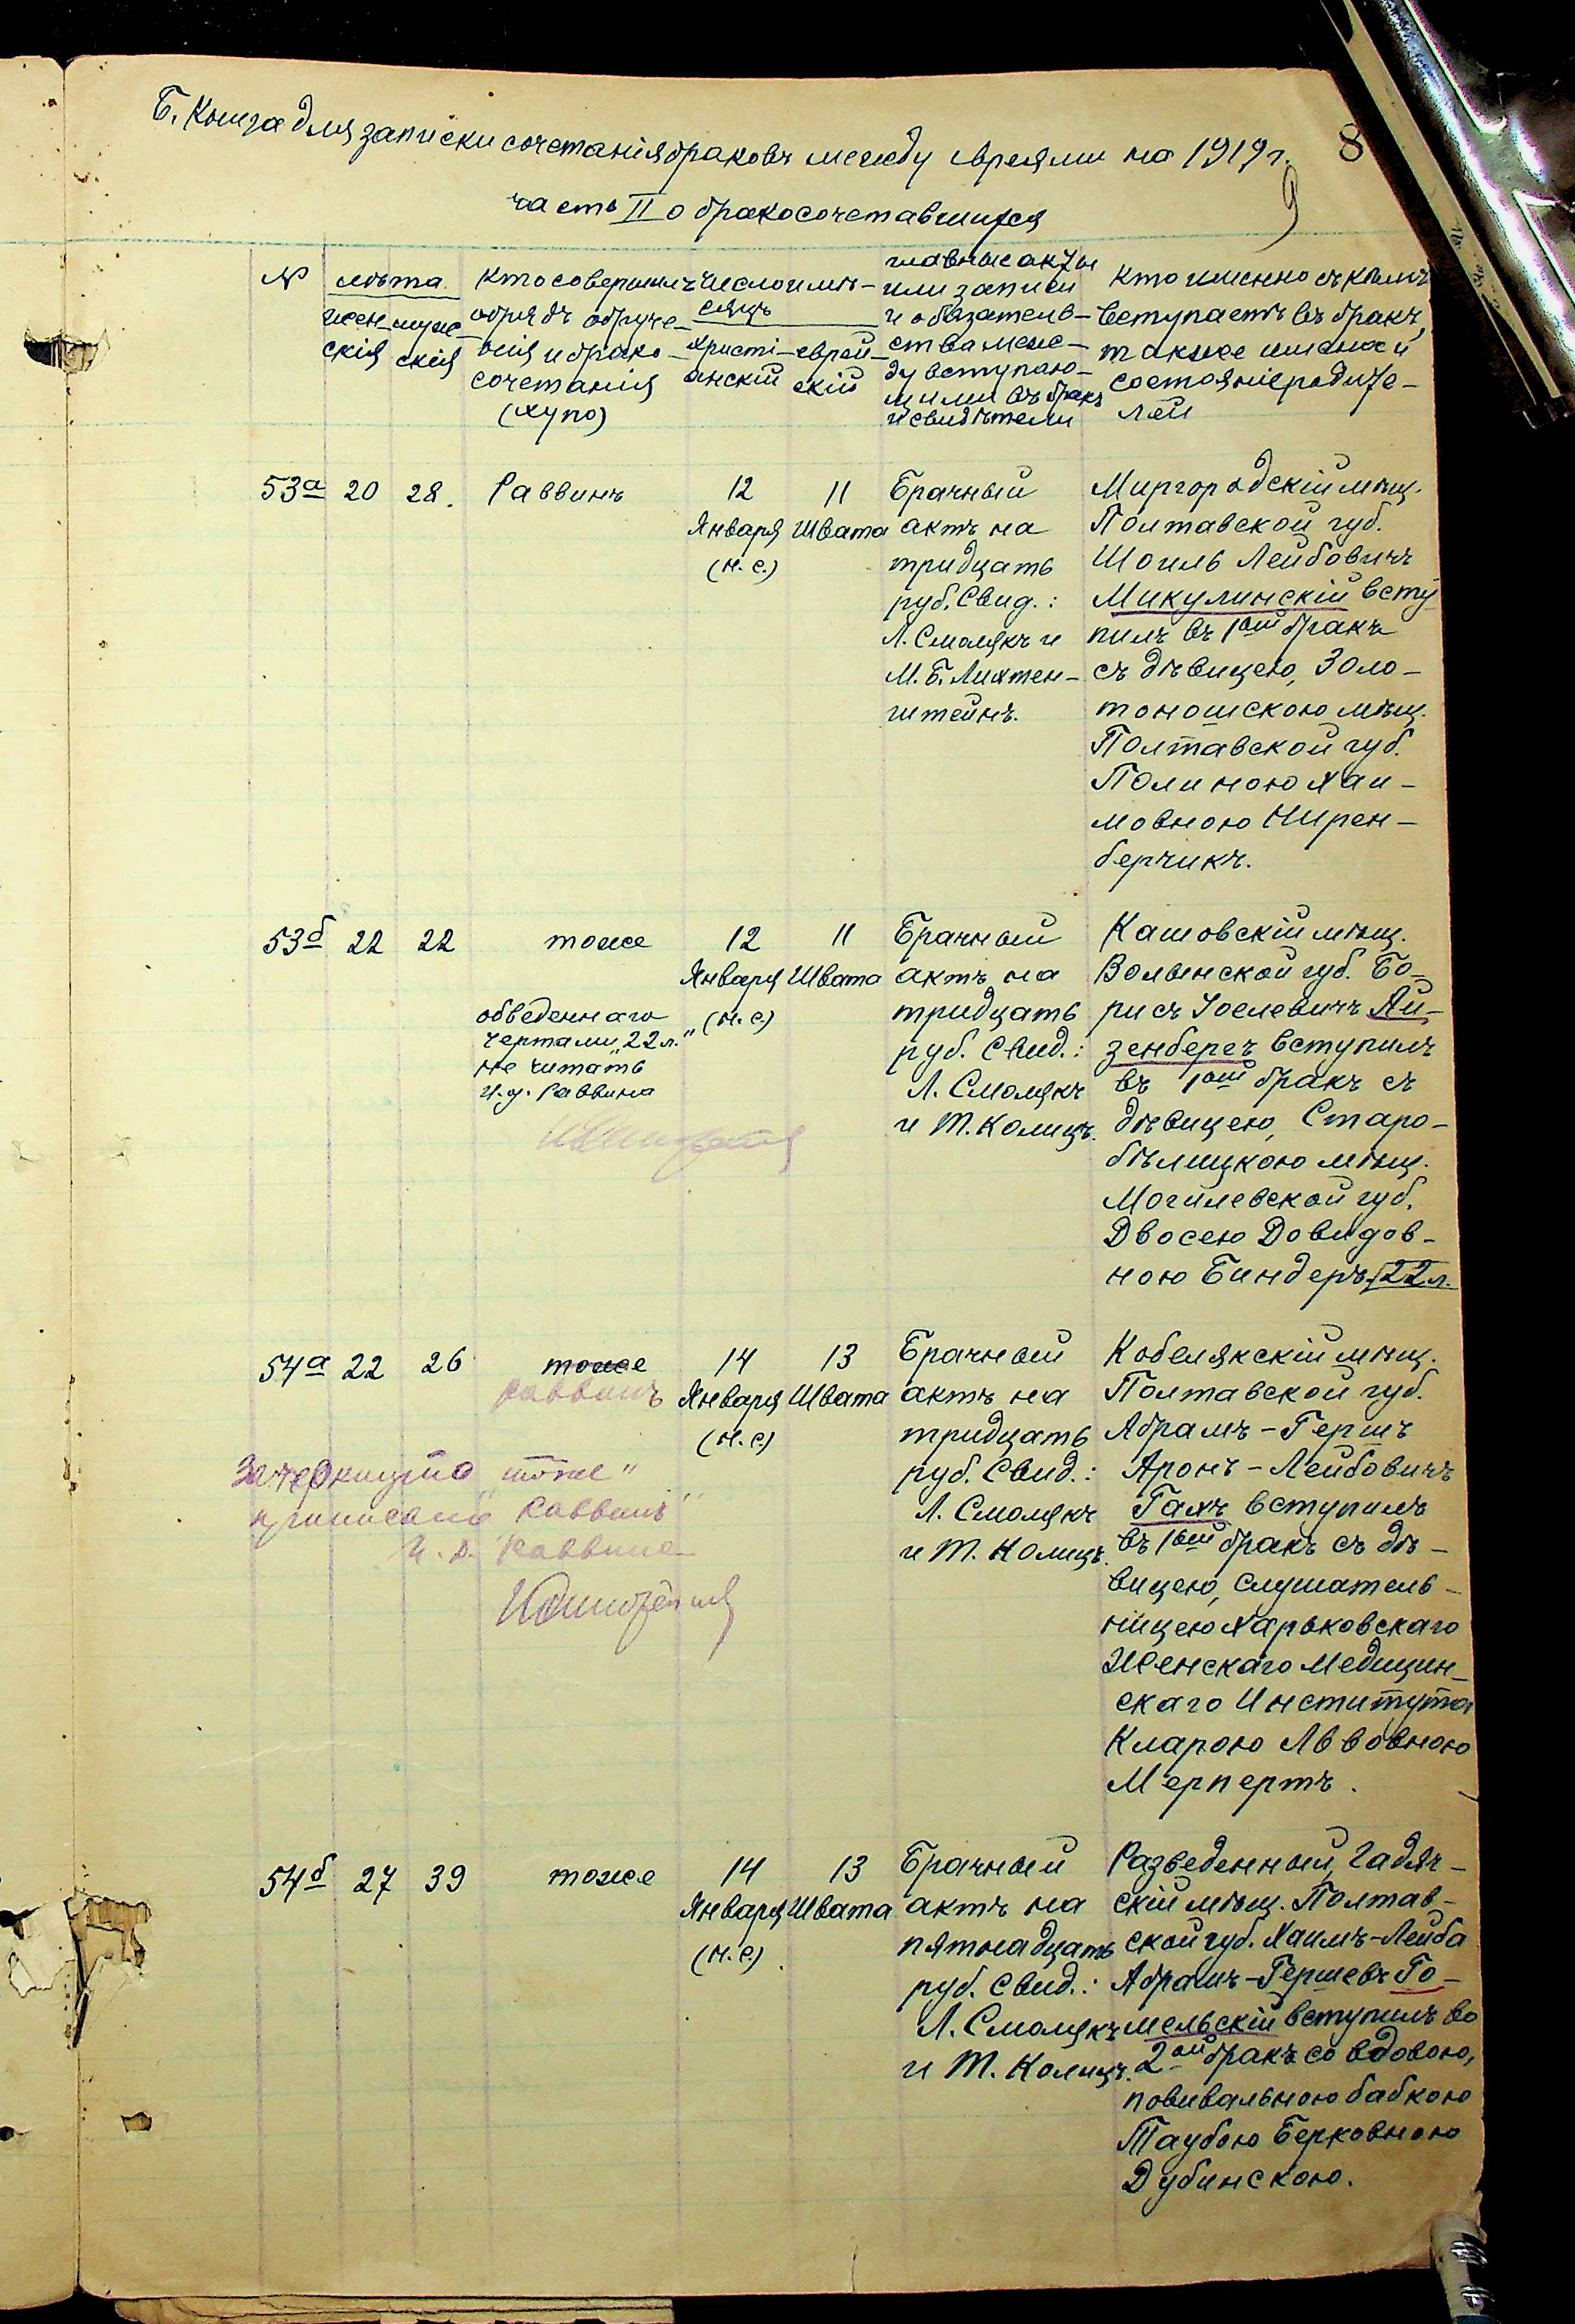 Б. Книга для записки сочетанія браковъ между евреями на 1919 г.
8
9
часть II о бракосочетавшихся
№
лѣта
жен-
скія
муже-
скія
кто совершилъ
обрядъ обруче-
нія и брако-
сочетанія
(хупо)
число и мѣ-
сяцъ
христі-
анскій
еврей-
скій
главные акты
или записи
и обязатель-
ства меж-
ду вступаю-
щими въ бракъ
и свидѣтели
кто именно съ кѣмъ
вступаетъ въ бракъ,
также имена и
состояніе родите-
лей
53а
20
28.
Раввинъ
12
Января
(н. с.)
11
Швата
Брачный
актъ на
тридцать
руб. Свид.:
Л. Смолякъ и
М. Б. Лихтен-
штейнъ.
Миргородскій мѣщ.
Полтавской губ.
Шоиль Лейбовичъ
Микулинскій всту
пилъ въ 1ый бракъ
съ дѣвицею, Золо-
тоношскою мѣщ.
Полтавской губ.
Полиною Хаи-
мовною Нирен-
берчикъ.
53б
22
22
тоже
обведеннаго
чертами „22 л."
не читать
И. д. Раввина
12
Января
(н. с.)
11
Швата
Брачный
актъ на
тридцать
руб. Свид.:
Л. Смолякъ
и Т. Колицъ.
Кашовскій мѣщ.
Волынской губ. Бо-
рисъ Іоселевичъ Ай-
зенбергъ вступилъ
въ 1ый бракъ съ
дѣвицею, Старо-
бѣлицкою мѣщ.
Могилевской губ.
Двосею Довидов-
ною Биндеръ, 22 л.
54а
22
26
тоже
раввинъ
Зачеркнуто „тоже"
приписано „Раввинъ"
И. д. Раввина
14
Января
(н. с.)
13
Швата
Брачный
актъ на
тридцать
руб. Свид.:
Л. Смолякъ
и Т. Колицъ.
Кобелякскій мѣщ.
Полтавской губ.
Абрамъ-Гершъ
Аронъ-Лейбовичъ
Галъ вступилъ
въ 1ый бракъ съ дѣ-
вицею, слушатель-
ницею Харьковскаго
Женскаго Медицин-
скаго Института
Кларою Львовною
Мерпертъ.
54б
27
39
тоже
14
Января
(н. с.)
13
Швата
Брачный
актъ на
пятнадцать
руб. Свид.:
Л. Смолякъ
и Т. Колицъ.
Разведенный, Гадяч-
скій мѣщ. Полтав-
ской губ. Хаимъ-Лейба
Абрамъ-Гершевъ Го-
мельскій вступилъ во
2ой бракъ со вдовою,
повивальною бабкою
Таубою Берковною
Дубинскою.